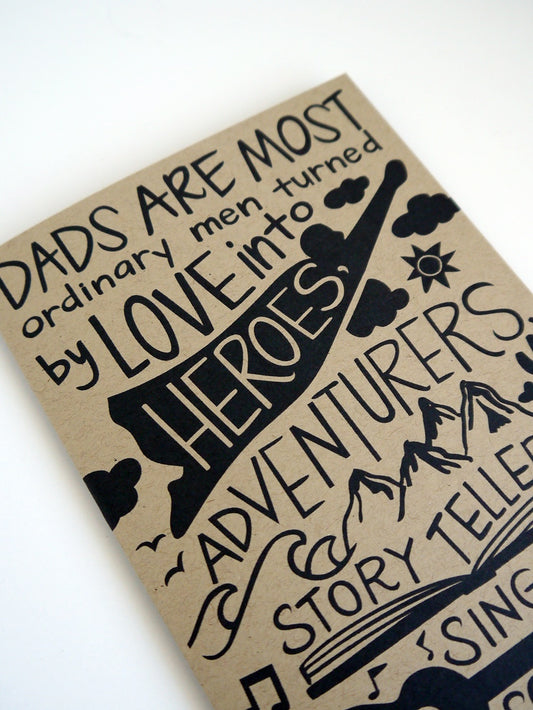 DADS ARE MOST
ordinary men turned
by LOVE into
HEROES,
ADVENTURERS,
STORY TELLE
SING